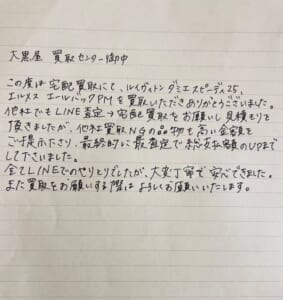 大黒屋 買取センター御中
この度は宅配買取にて、ルイヴィトン ダミエスピーディ25、
エルメス エールバックPMを買取いただきありがとうございました。
他社でもLINE査定→宅配買取をお願いし見積もりを
頂きましたが、他社買取NGの品物も高い金額を
ご提示くださり、最終的に再査定で総支払額のUPまで
して下さいました。
全てLINEでのやりとりでしたが、大変丁寧で安心できました。
また買取をお願いする際はよろしくお願いいたします。